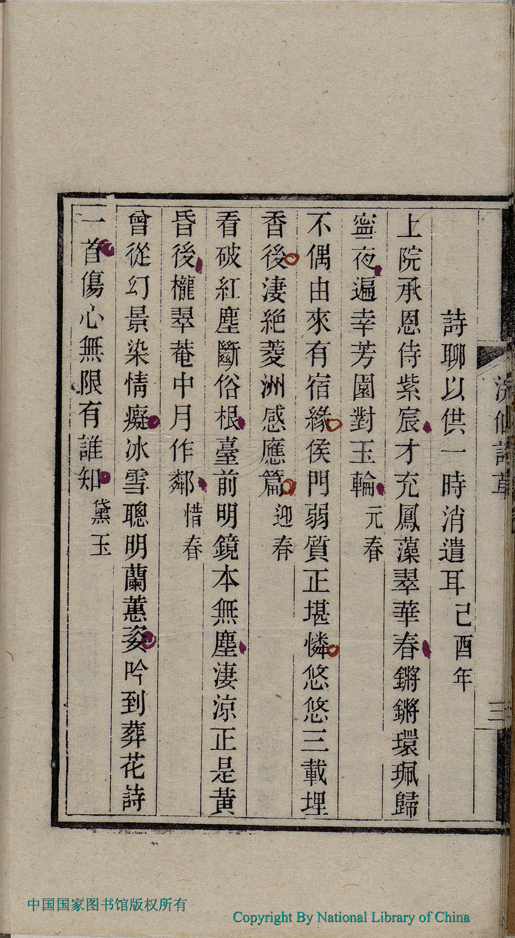 浣仙詩草
三
詩聊以供一時消遣耳己酉年
上院承恩侍紫宸才充鳳藻翠華春鏘鏘環珮歸
寧夜遍幸芳園對玉輪元春
不偶由來有宿緣侯門弱質正堪憐悠悠三載埋
香後淒絶菱洲感應篇迎春
看破紅塵斷俗根臺前明鏡本無塵淒涼正是黃
昏後櫳翠菴中月作鄰惜春
曾從幻景染情癡冰雪聰明蘭蕙姿吟到葬花詩
一首傷心無限有誰知黛玉
中国国家图书馆版权所有
Copyright By National Library of China